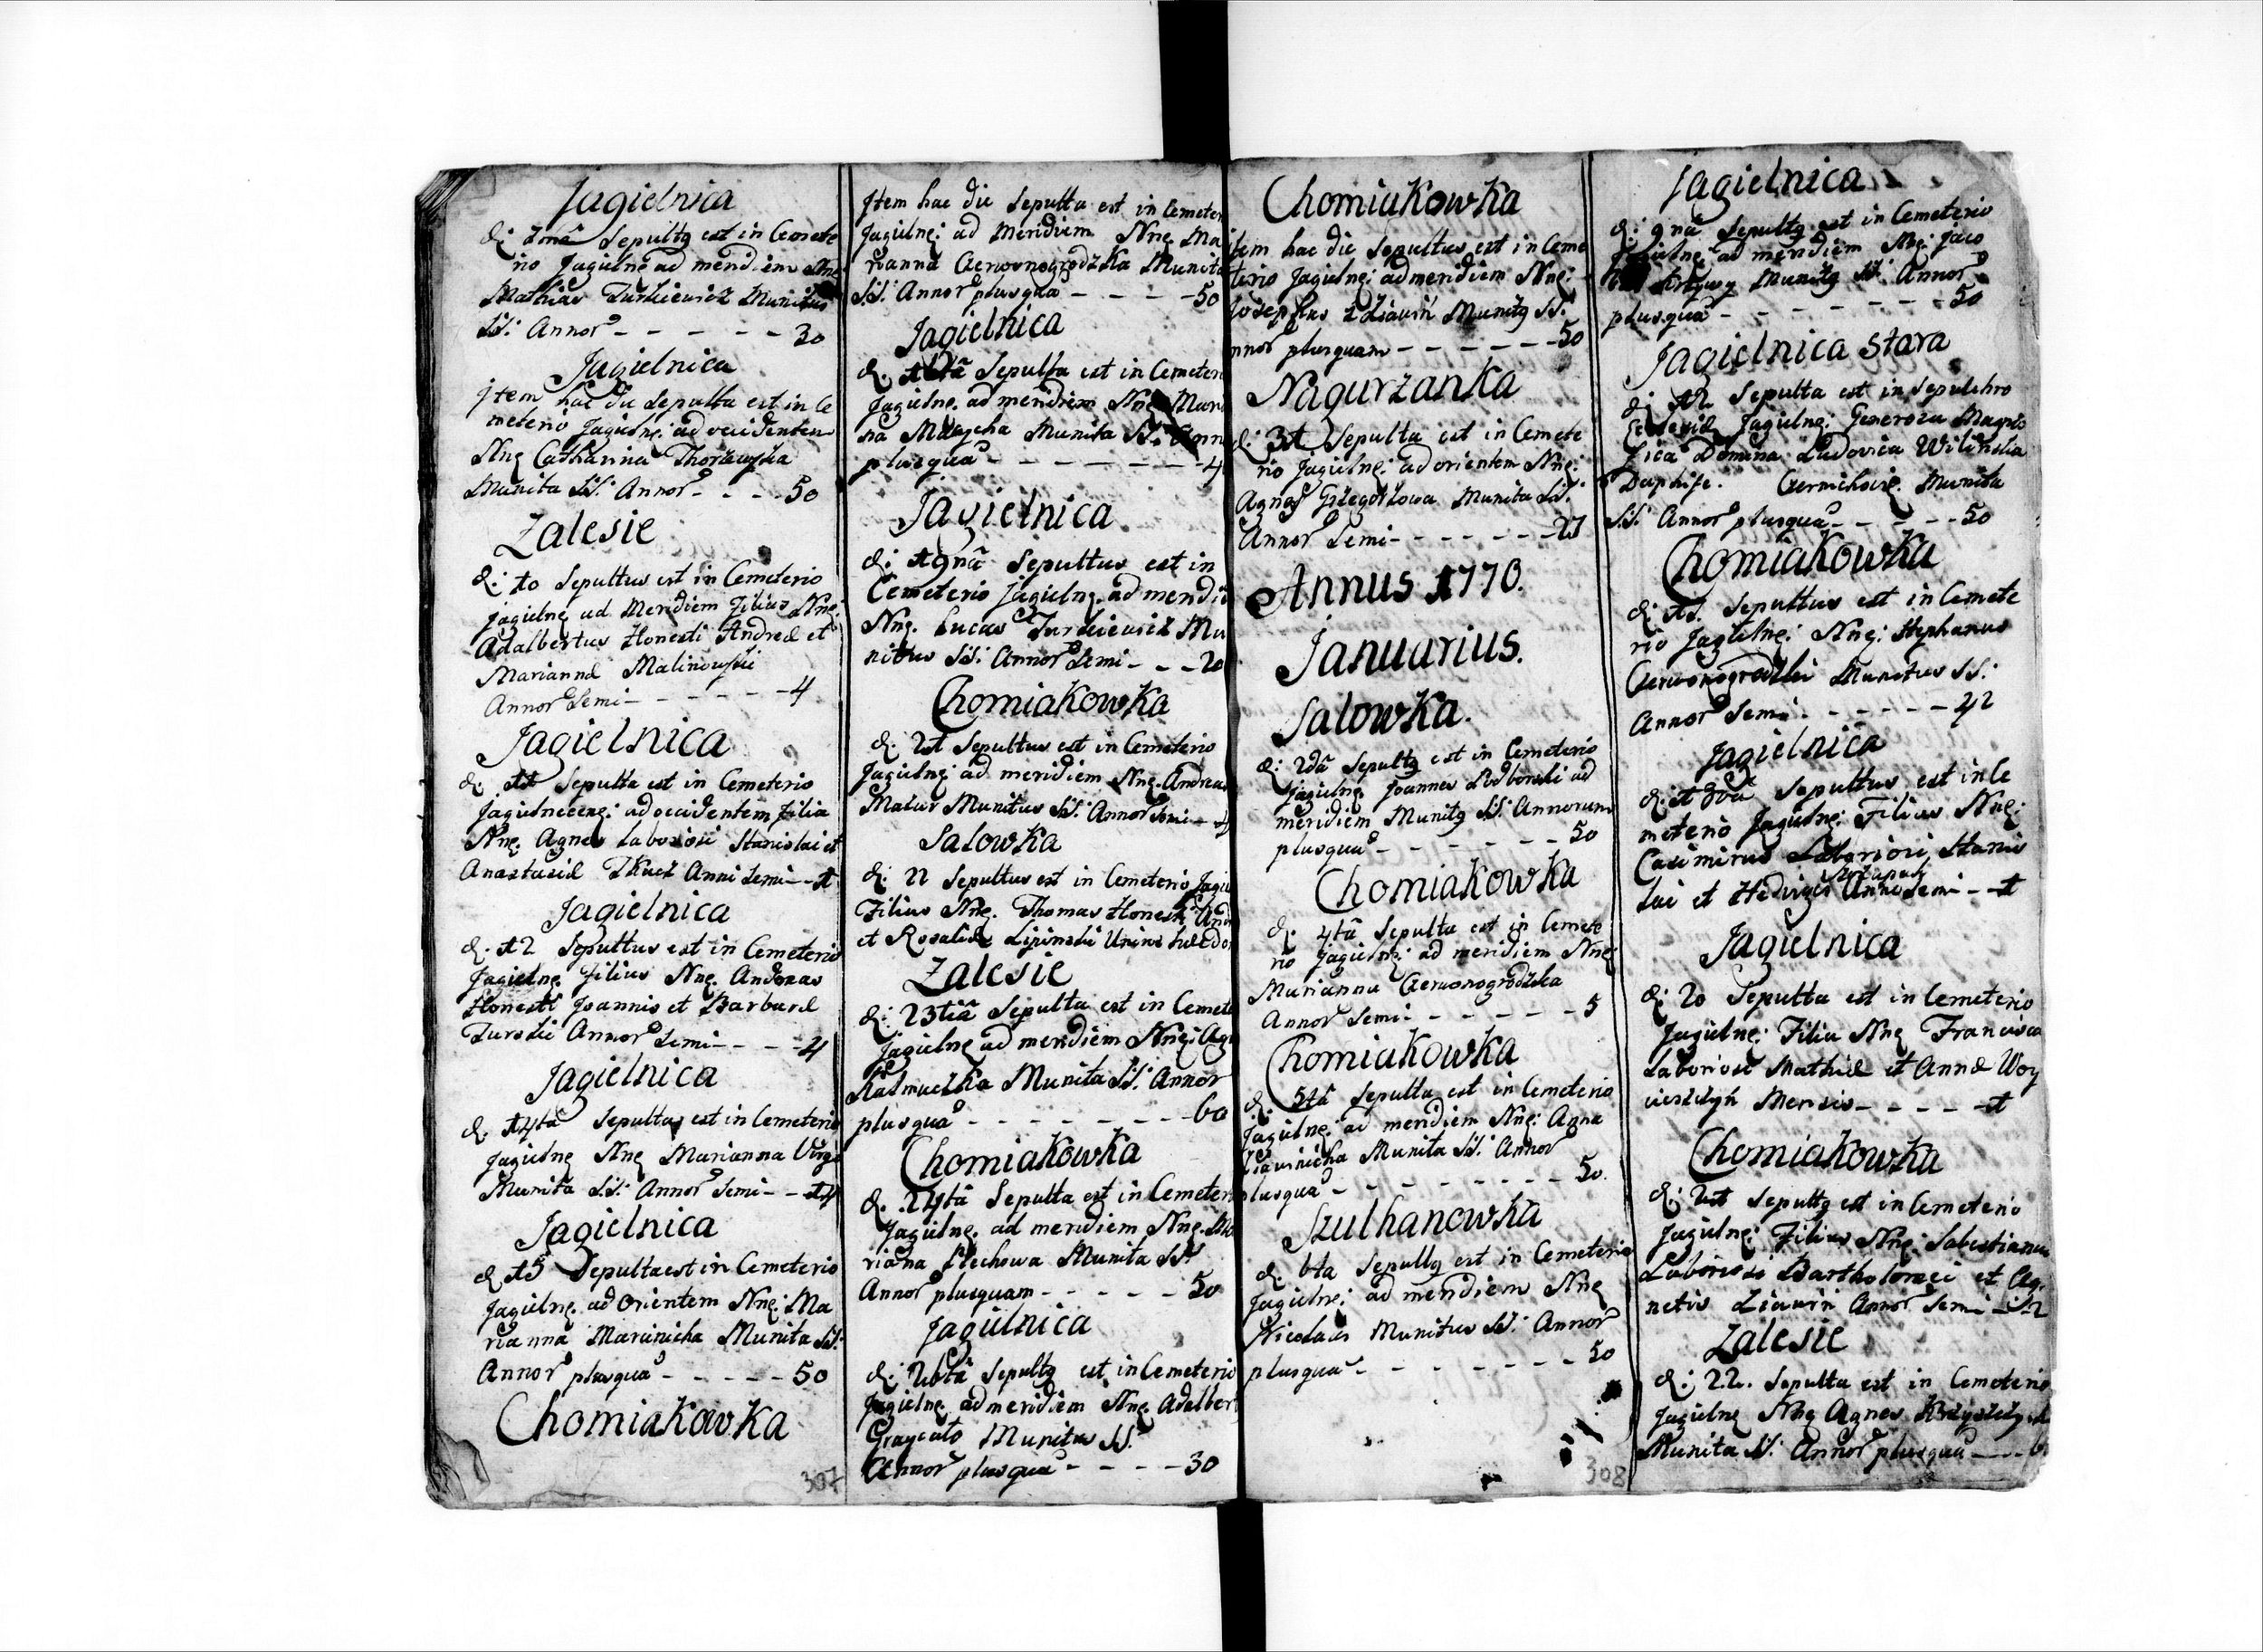 Jagielnica
d: Sepultg est in Cemete
rio Jagielnę ad meridiem Nnę
Mathias Turkiewicz Munitus
SS: Annor — — — — — 30
Jagielnica
Jtem hac die Sepulta est in Ce
meterio Jagielnę: ad occidentem
Nnę Catharina
Munita SS: Annor — — — 50
Zalesie
d: 10 Sepultus est in Cemeterio
Jagielnę ad Meridiem Filius Nnę:
Adalbertus Honesti Andreæ et
Mariannæ Malinowskie
Annor Semi — — — — — 4
Jagielnica
d: 11 Sepulta est in Cemeterio
ad occidentem filia
Nnę. Agnes Laboriosi Stanislai et
Anastasiæ Tkacz Anni Semi — 1
Jagielnica
d. 12 Sepultus est in Cemeterio
Jagielnę. Filius Nnę. Andreas
Honesti Joannis et Barbaræ
Turskie Annor Semi — — — 4
Jagielnica
d. 14ta Sepulta est in Cemeterio
Jagielnę Nnę Marianna Virgo
Munita SS: Annor Semi — — 14
Jagielnica
d 15 Sepulta est in Cemeterio
Jagielnę. ad Orientem Nnę: Ma
rianna Marinicha Munita SS:
Annor plusqua — — — — — 50
Chomiakowka
307
Jtem hac die Sepulta est in Cemeter
Jagielnę: ad Meridiem Nnę Ma
rianna Czerwonogrodzka Munita
SS: Annor plusqua — — — — 50
Jagielnica
d. Sepulta est in Cemeteri
Jagielnę. ad meridiem Nnę Mari
na Munita SS: Ann
plusqua — — — — — — — 4
Jagielnica
d: 19na Sepultus est in
Cemeterio Jagielnę. ad meridie
Nnę. Lucas Turkiewicz Mu
nitus SS: Annor Semi — — — 20
Chomiakowka
d. 21 Sepultus est in Cemeterio
Jagielnę: ad meridiem Nnę. Andreas
Mazur Munitus SS: Annor Semi —
Salowka
d: 22 Sepultus est in Cemeterio Jagie
Filius Nnę. Thomas Honesti
et Rosaliæ Lipinskie Unius
Zalesie
d: 23tia Sepulta est in Cemete
Jagielnę ad meridiem Nnę: Ag
Kalmuczka Munita SS: Annor
plusqua — — — — — — — 60
Chomiakowka
d. 24ta Sepulta est in Cemeter
Jagielnę. ad meridiem Nnę. Ma
rianna Lechowa Munita SS:
Annor plusquam — — — — — 50
Jagielnica
d: 26ta Sepultg est in Cemeterio
Jagielnę ad meridiem Nnę Adalbert
Munitus SS:
Annor plusqua — — — — 30
Chomiakowka
Jtem hac die Sepultus est in Ceme
terio Jagielnę: ad meridiem Nnę:
Josephus Ziawin Munitg SS:
nnor plusquam — — — — — — 50
Nagurzanka
d: 31 Sepulta est in Cemete
rio Jagielnę: ad orientem Nnę:
Agnes Grzegorzowa Munita SS:
Annor Semi — — — — — — — 27
Annus 1770.
Januarius.
Salowka.
d: 2da Sepultg est in Cemeterio
Jagielnę Joannes Podborski ad
meridiem Munitg SS: Annorum
plusqua — — — — — — 50
Chomiakowka
d: 4ta Sepulta est in Cemete
rio Jagielnę: ad meridiem Nnę
Marianna Czerwonogrodzka
Annor Semi — — — — — — 5
Chomiakowka
d: 5ta Sepulta est in Cemeterio
Jagielnę: ad meridiem Nnę: Agna
Ziawinicha Munita SS: Annor
plusqua — — — — — — — — 50.
Szulhanowka
d 6ta Sepultg est in Cemeterio
Jagielnę: ad meridiem Nnę
Nicolaus Munitus SS: Annor
plusqua — — — — — — — 50
308
Jagielnica
d: 9na Sepultg est in Cemeterio
Jagielnę ad meridiem Nnę: Jaco
Munitg SS: Annor
plusqua — — — — — — — 50
Jagielnica stara
d: 12 Sepulta est in Sepulchro
Ecclesiæ Jagielnę: Generosa Magni
fica Domina Ludovica Wilinska
Czernichovię. Munita
SS: Annor plusqua — — — — 50
Chomiakowka
d: Sepultus est in Cemete
rio Jagielnę: Nnę: Stephanus
Czerwonogrodzki Munitus SS:
Annor Semi — — — — — — 42
Jagielnica
d: 18va Sepultus est in Ce
meterio Jagielnę: Filius Nnę:
Casimirus Laboriosi Stanis
lai et Hedvigis Anni Semi — — 1
Jagielnica
d: 20 Sepulta est in Cemeterio
Jagielnę: Filia Nnę Francisca
Laboriosi Mathiæ et Annæ Woy
Mensis — — — — — 1
Chomiakowka
d: 21 Sepultg est in Cemeterio
Jagielnę: Filius Nnę: Sabestianus
Laboriosi Bartholomei et Ag:
netis Ziawin Annor Semi — 2
Zalesie
d: 22. Sepulta est in Cemeterio
Jagielnę Nnę Agnes
Munita SS: Annor plusqua — — —